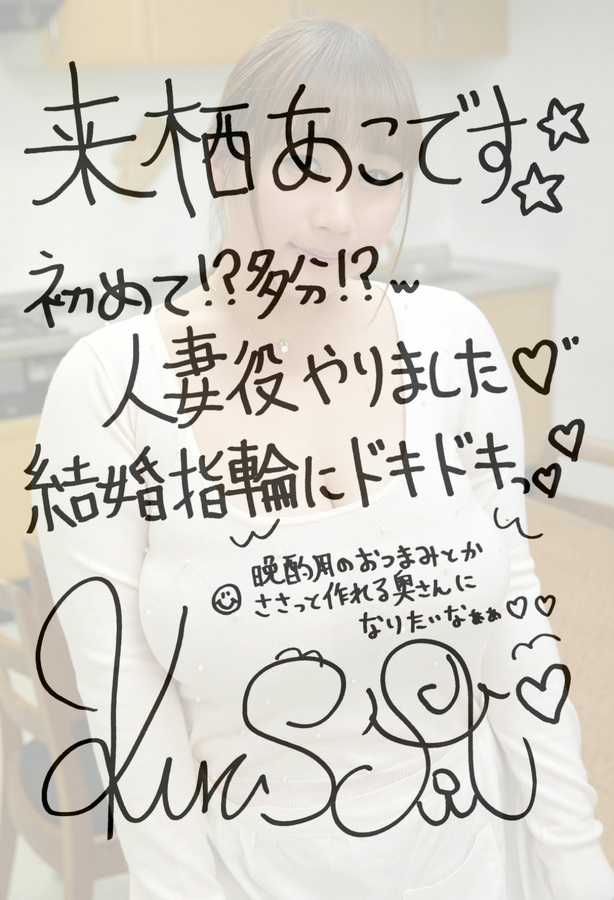 来栖あこです☆☆
初めて!?多分!?w
人妻役やりました♡
結婚指輪にドキドキっ♡♡
晩酌用のおつまみとか
ささっと作れる奥さんに
なりたいなぁぁ♡♡